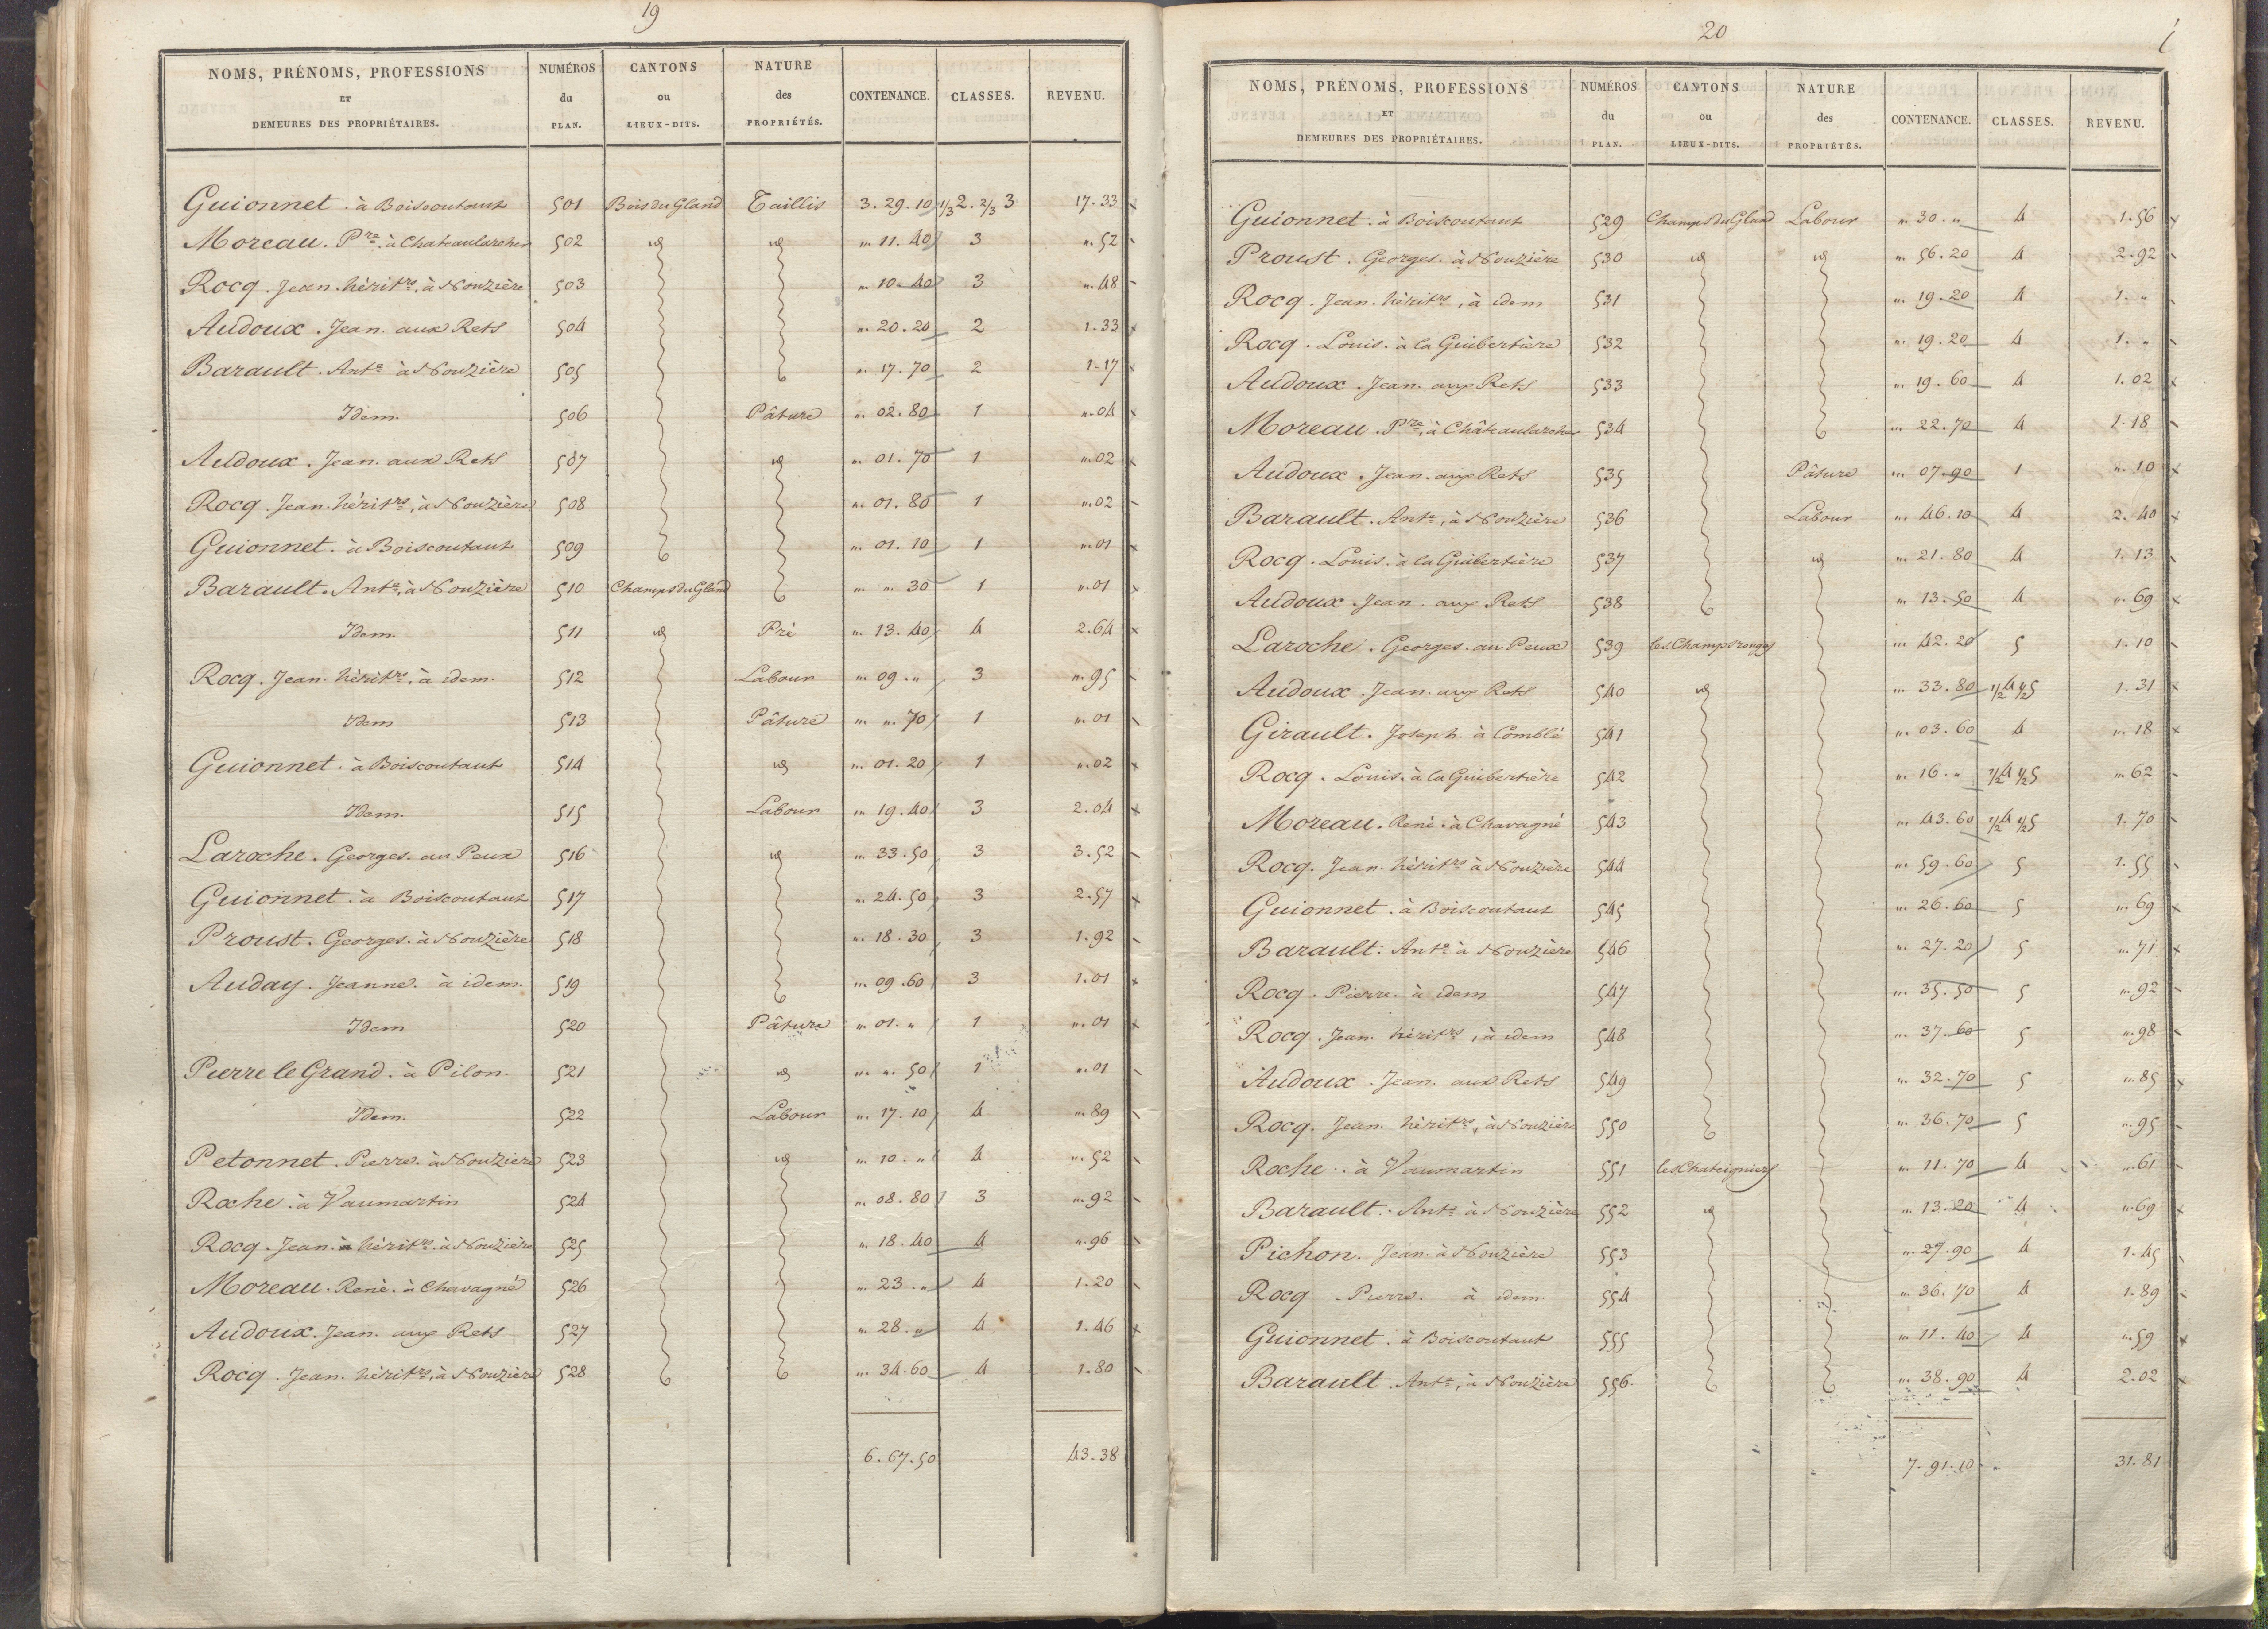 19
NOMS, PRÉNOMS, PROFESSIONS ET DEMEURES DES PROPRIÉTAIRES. NUMÉROS du PLAN. CANTONS ou LIEUX-DITS. NATURE des PROPRIÉTÉS. CONTENANCE. CLASSES. REVENU.
Guionnet. à Boiscoutant 501 Bois du Gland Taillis 3.29.10 1/3 2. 2/3 3 17.33
Moreau. Pre. à Chateaularcher 502 id id " 11.40 3 ".52
Rocq. Jean. héritrs, à Nouzière 503 " 10.40 3 ".48
Audoux. Jean. aux Rets 504 " 20.20 2 1.33
Barault. Ante à Nouzière 505 " 17.70 2 1.17
Idem. 506 Pâture " 02.80 1 ".04
Audoux. Jean. aux Rets 507 id " 01.70 1 ".02
Rocq. Jean. héritrs, à Nouzière 508 " 01.80 1 ".02
Guionnet. à Boiscoutant 509 " 01.10 1 ".01
Barault. Ante, à Nouzière 510 Champs du Gland " ". 30 1 ".01
Idem. 511 id Pré " 13.40 4 2.64
Rocq. Jean. héritrs, à idem. 512 Labour " 09." 3 ".95
Idem 513 Pâture " ". 70 1 ".01
Guionnet. à Boiscoutant 514 id " 01.20 1 ".02
Idem. 515 Labour " 19.40 3 2.04
Laroche. Georges. au Peux 516 id " 33.50 3 3.52
Guionnet. à Boiscoutant 517 " 24.50 3 2.57
Proust. Georges. à Nouzière 518 " 18.30 3 1.92
Auday. Jeanne. à idem. 519 " 09.60 3 1.01
Idem 520 Pâture " 01." 1 ".01
Pierre le Grand. à Pilon. 521 id " ". 50 1 ".01
Idem. 522 Labour " 17.10 4 ".89
Petonnet. Pierre. à Nouziere 523 id " 10." 4 ".52
Roche. à Vaumartin 524 " 08.80 3 ".92
Rocq. Jean. héritrs. à Nouzière 525 " 18.40 4 ".96
Moreau. René. à Chavagné 526 " 23." 4 1.20
Audoux. Jean. aux Rets 527 " 28." 4 1.46
Rocq. Jean. héritrs, à Nouzière 528 " 34.60 4 1.80
6.67.50 43.38
20
NOMS, PRÉNOMS, PROFESSIONS ET DEMEURES DES PROPRIÉTAIRES. NUMÉROS du PLAN. CANTONS ou LIEUX-DITS. NATURE des PROPRIÉTÉS. CONTENANCE. CLASSES. REVENU.
Guionnet. à Boiscoutant 529 Champs du Gland Labour " 30." 4 1.56
Proust. Georges. à Nouzière 530 id id " 56.20 4 2.92
Rocq. Jean. héritrs, à idem 531 " 19.20 4 1."
Rocq. Louis. à la Guibertière 532 " 19.20 4 1."
Audoux. Jean. aux Rets 533 " 19.60 4 1.02
Moreau. Pre, à Châteaularcher 534 " 22.70 4 1.18
Audoux. Jean. aux Rets 535 Pâture " 07.90 1 ".10
Barault. Ante, à Nouzière 536 Labour " 46.10 4 2.40
Rocq. Louis. à la Guibertière 537 id " 21.80 4 1.13
Audoux. Jean. aux Rets 538 " 13.50 4 ".69
Laroche. Georges. au Peux 539 les Champs rouges " 42.20 5 1.10
Audoux. Jean. aux Rets 540 id " 33.80 1/2 4 1/2 5 1.31
Girault. Joseph. à Comblé 541 " 03.60 4 ".18
Rocq. Louis. à la Guibertière 542 " 16." 1/2 4 1/2 5 ".62
Moreau. René. à Chavagné 543 " 43.60 1/2 4 1/2 5 1.70
Rocq. Jean. héritrs à Nouzière 544 " 59.60 5 1.55
Guionnet. à Boiscoutant 545 " 26.60 5 ".69
Barault. Ante à Nouzière 546 " 27.20 5 ".71
Rocq. Pierre. à idem 547 " 35.50 5 ".92
Rocq. Jean. héritrs, à idem 548 " 37.60 5 ".98
Audoux. Jean. aux Rets 549 " 32.70 5 ".85
Rocq. Jean. héritrs, à Nouzière 550 " 36.70 5 ".95
Roche. à Vaumartin 551 les Chateigniers " 11.70 4 ".61
Barault. Ante à Nouzière 552 id " 13.20 4 ".69
Pichon. Jean. à Nouzière 553 " 27.90 4 1.45
Rocq. Pierre. à idem. 554 " 36.70 4 1.89
Guionnet. à Boiscoutant 555 " 11.40 4 ".59
Barault. Ante, à Nouzière 556. " 38.90 4 2.02
7.91.10 31.81